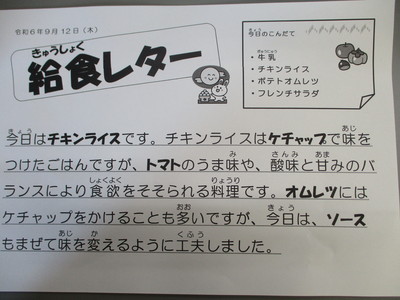 令和6年9月12日（木）
きゅうしょく
給食レター
今日のこんだて
ぎゅうにゅう
・牛乳
・チキンライス
・ポテトオムレツ
・フレンチサラダ
きょう あじ
今日はチキンライスです。チキンライスはケチャップで味を
み さんみ あま
つけたごはんですが、トマトのうま味や、酸味と甘みのバ
しょくよく りょうり
ランスにより食欲をそそられる料理です。オムレツには
おお きょう
ケチャップをかけることも多いですが、今日は、ソース
あじ か くふう
もまぜて味を変えるように工夫しました。